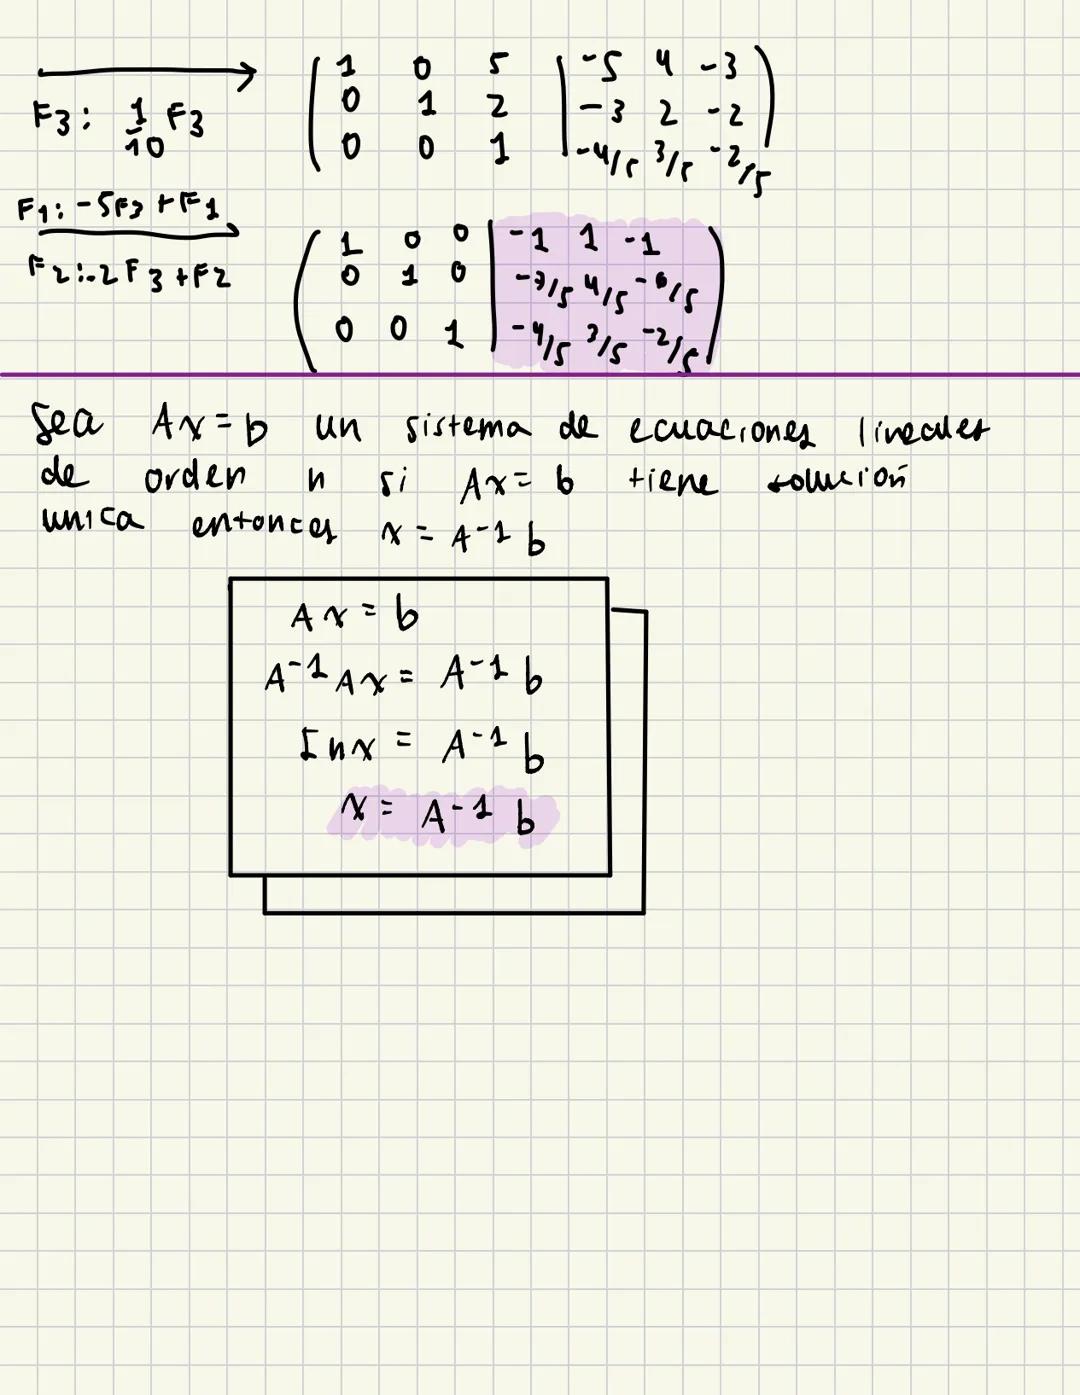 1 0 5 | -5 4 -3
F3: 1/10 F3 0 1 2 | -3 2 -2
0 0 1 | -4/5 3/5 -2/5
F1: -5F3 + F1
1 0 0 | -1 1 -1
F2: -2F3 + F2 0 1 0 | -7/5 4/5 -6/5
0 0 1 | -4/5 3/5 -2/5
Sea Ax = b un sistema de ecuaciones lineales
de orden n si Ax = b tiene solución
unica entonces x = A-1 b
Ax = b
A-1 Ax = A-1 b
Inx = A-1 b
x = A-1 b